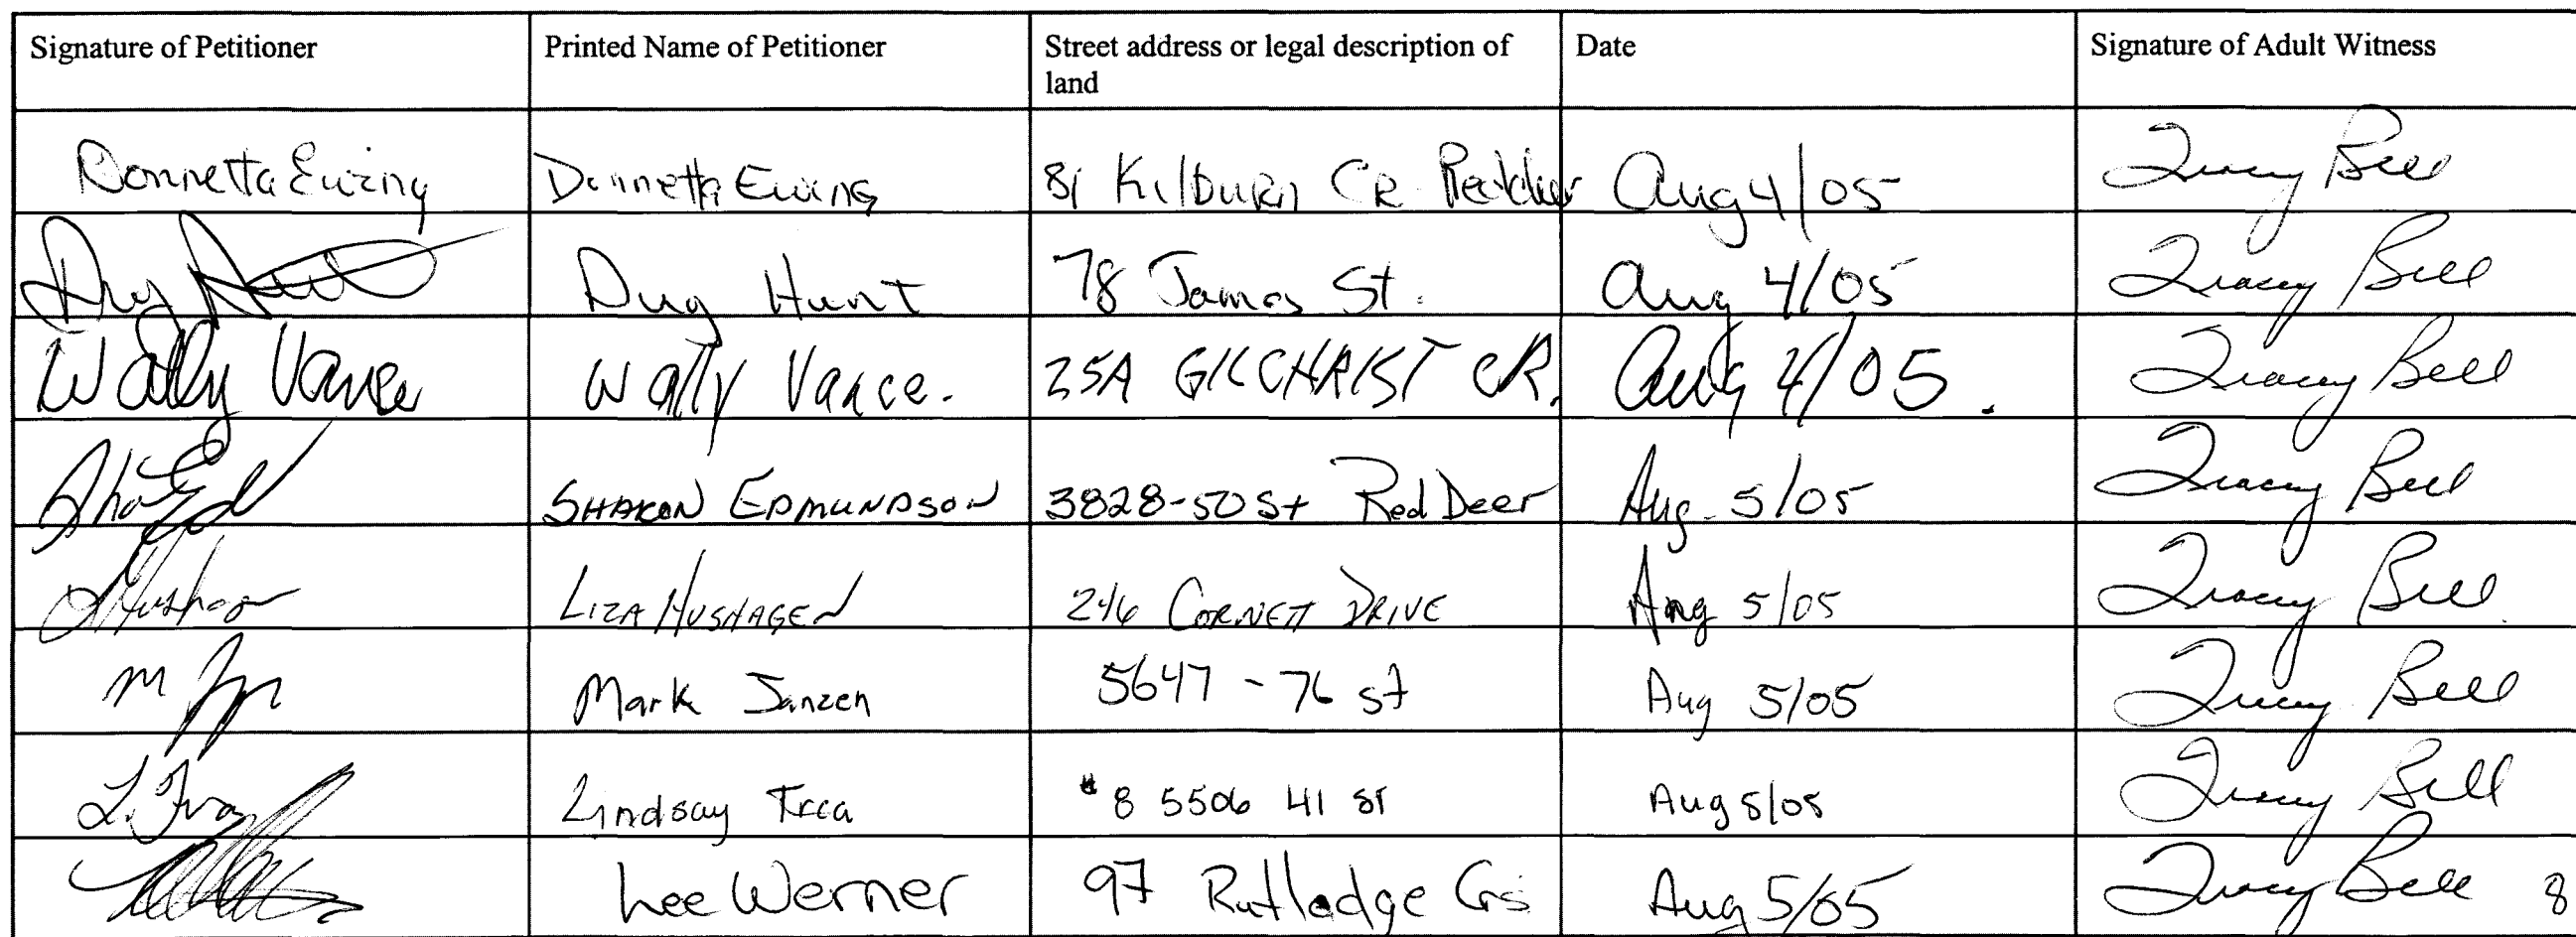 Signature of Petitioner Printed Name of Petitioner Street address or legal description of land Date Signature of Adult Witness
Donnetta Ewing Donnetta Ewing 81 Kilburn CR. Red Deer Aug 4/05 Tracey Bell
Dug Hunt Dug Hunt 78 James St. Aug 4/05 Tracey Bell
Wally Vance Wally Vance. 25A GILCHRIST CR. Aug 4/05. Tracey Bell
SHARON EDMUNDSON 3828-50 St Red Deer Aug. 5/05 Tracey Bell
LIZA HUSHAGEN 246 CORNETT DRIVE Aug 5/05 Tracey Bell
M Mark Janzen 5647 - 76 st Aug 5/05 Tracey Bell
L. Lindsay #8 5506 41 ST Aug 5/05 Tracey Bell
Lee Werner 97 Rutledge Crs Aug 5/05 Tracey Bell 8